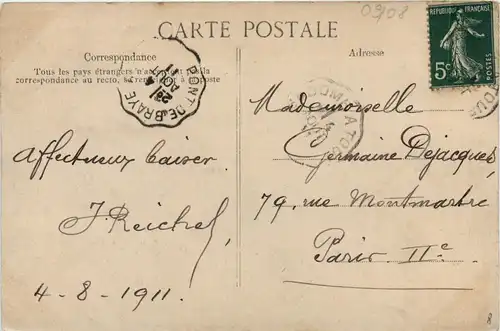 CARTE POSTALE
0908
RÉPUBLIQUE FRANÇAISE
5c
Correspondance
Tous les pays étrangers n'acceptent pas la
correspondance au recto, se renseigner à la poste
Adresse
PONT DE BRAYE
Mademoiselle
Germaine Dejacques
79, rue Montmartre
Paris IIe
Affectueux baiser
J. Reichel
4-8-1911.
8